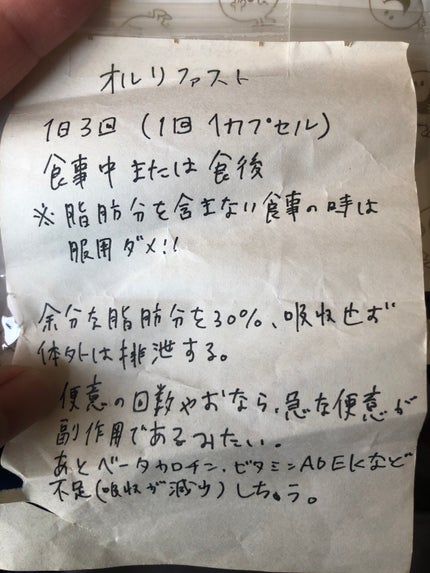 オルリファスト
1日3回(1回1カプセル)
食事中または食後
※脂肪分を含まない食事の時は
服用ダメ!!
余分な脂肪分を30%、吸収せず
体外は排泄する。
便意の回数やおなら、急な便意が
副作用であるみたい。
あとベータカロチン、ビタミンADEKなど
不足(吸収が減少)しちゃう。